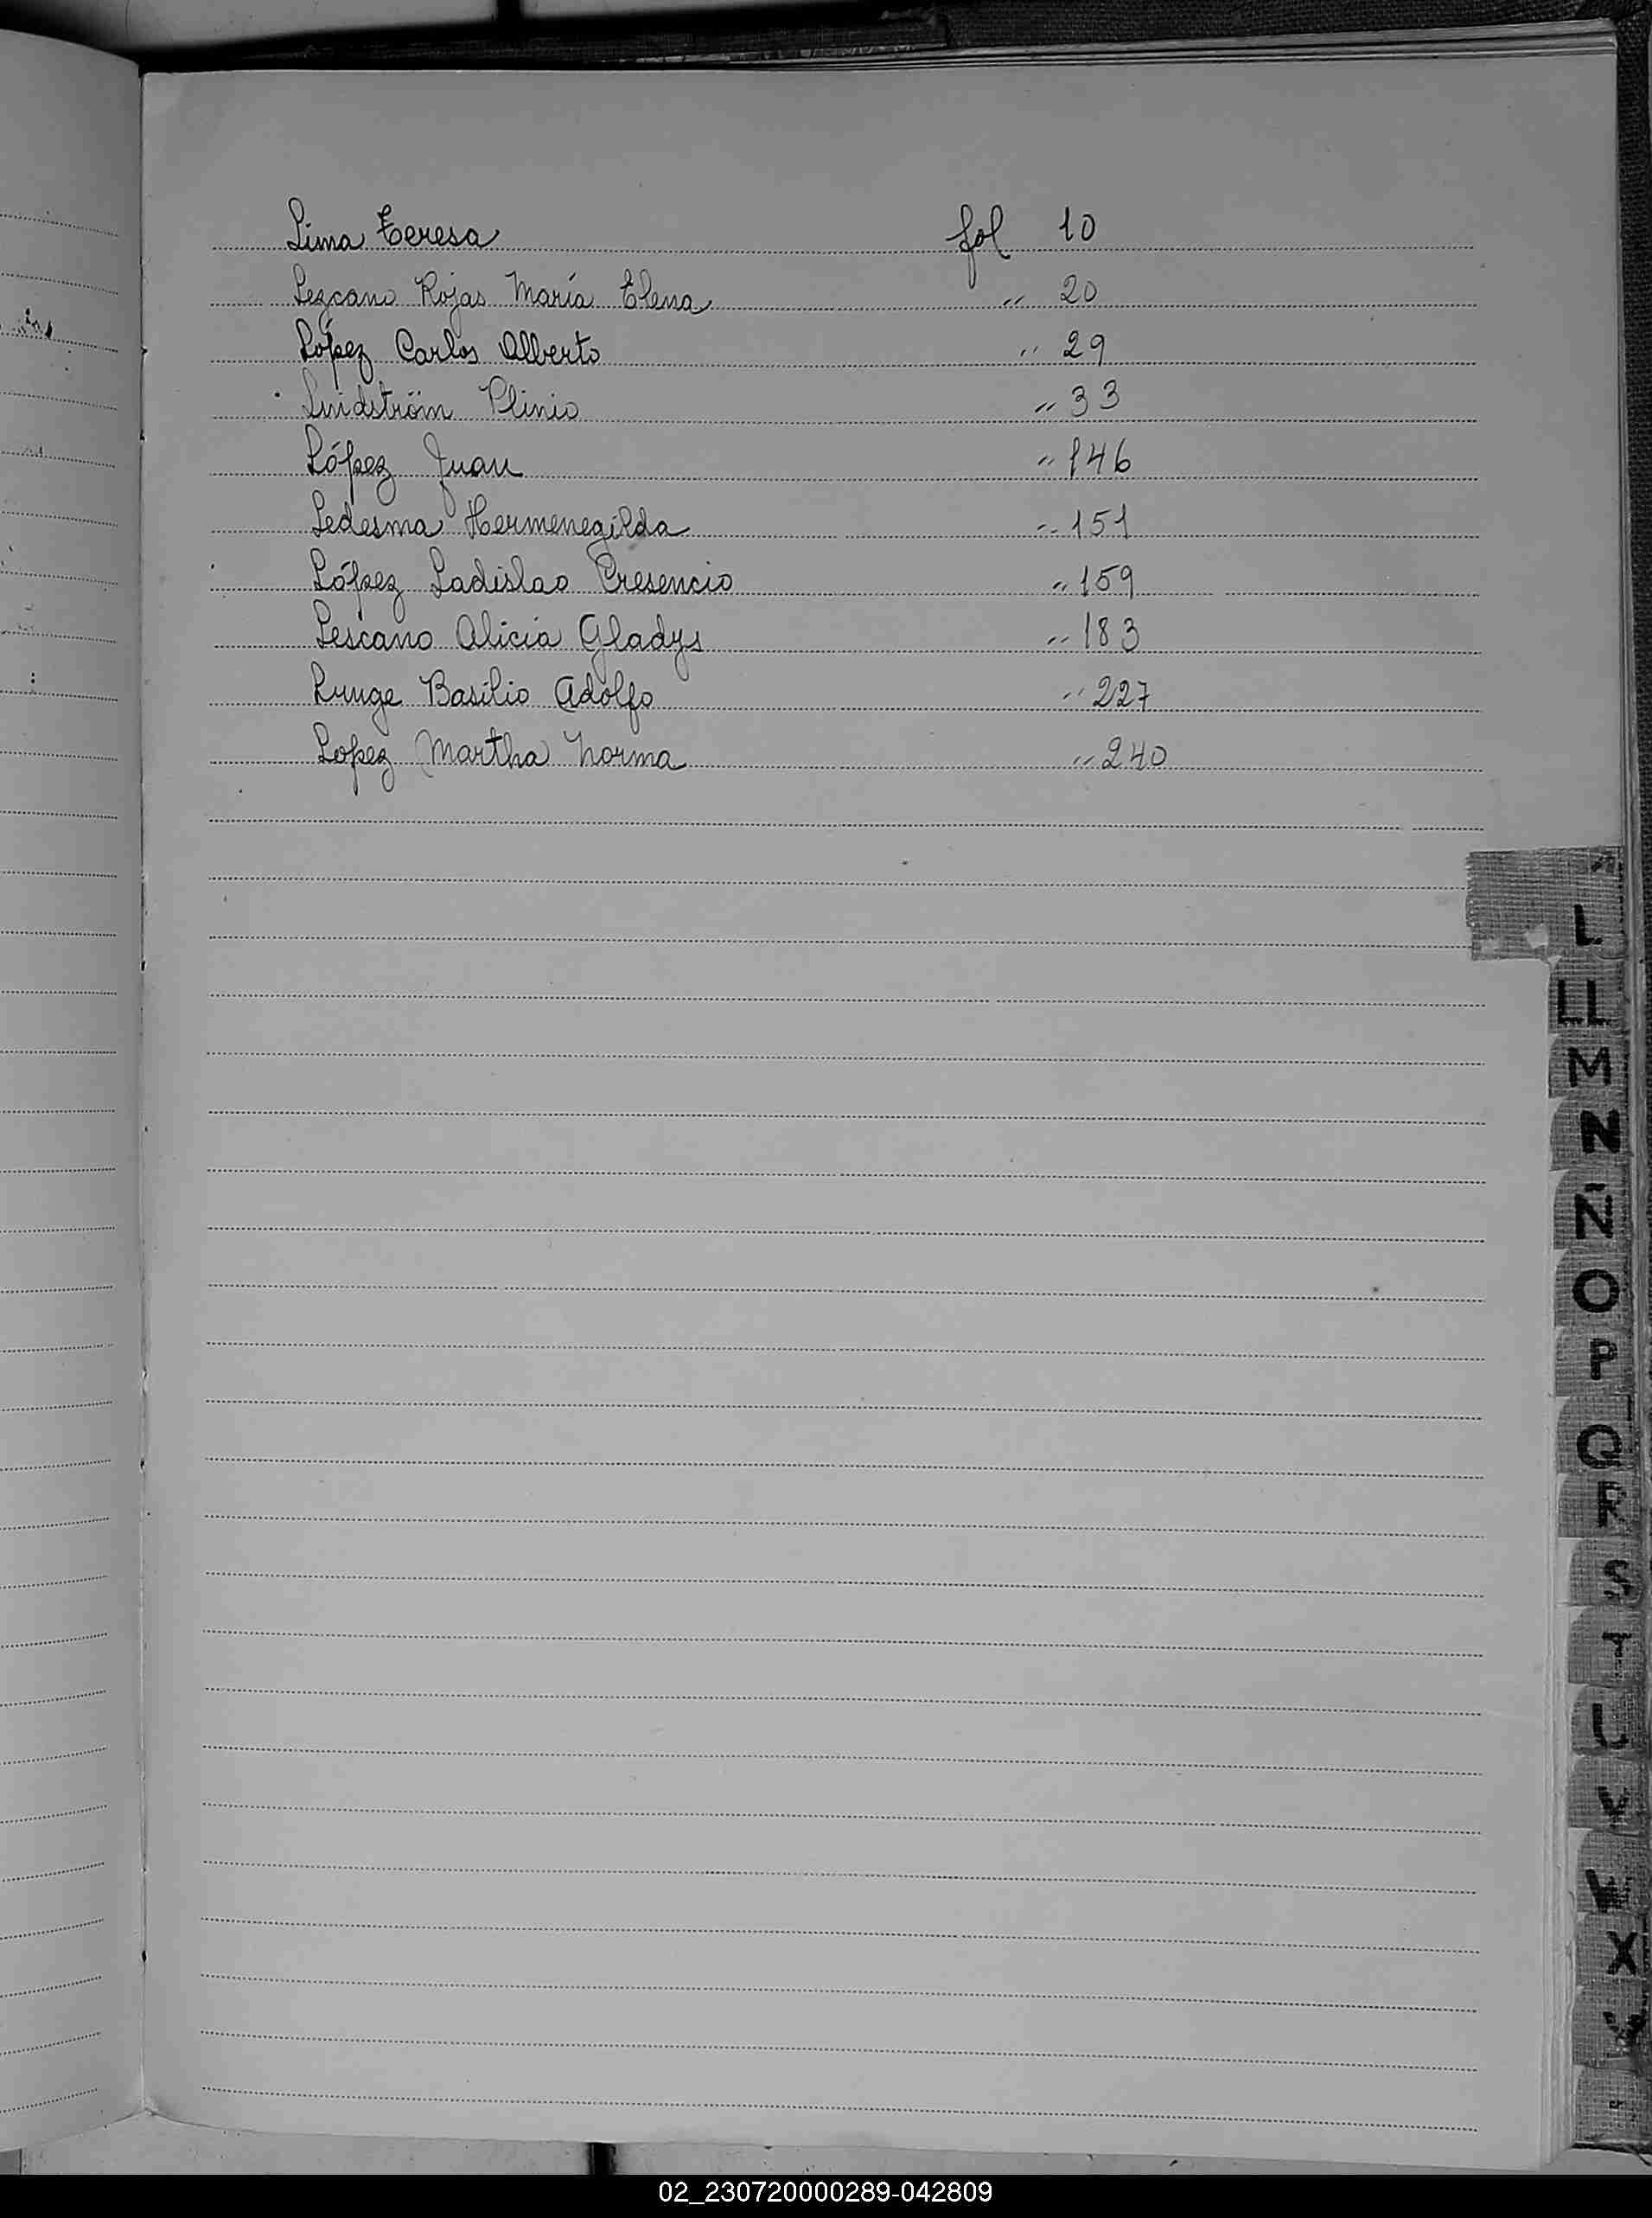 Lima Teresa fol 10
Lezcano Rojas María Elena " 20
López Carlos Alberto " 29
Lindström Plinio " 33
López Juan " 146
Ledesma Hermenegilda " 151
López Ladislao Cresencio " 159
Lescano Alicia Gladys " 183
Lunge Basilio Adolfo " 227
Lopez Martha Norma " 240
L
LL
M
N
Ñ
O
P
Q
R
S
T
U
V
W
X
Y
02_230720000289-042809